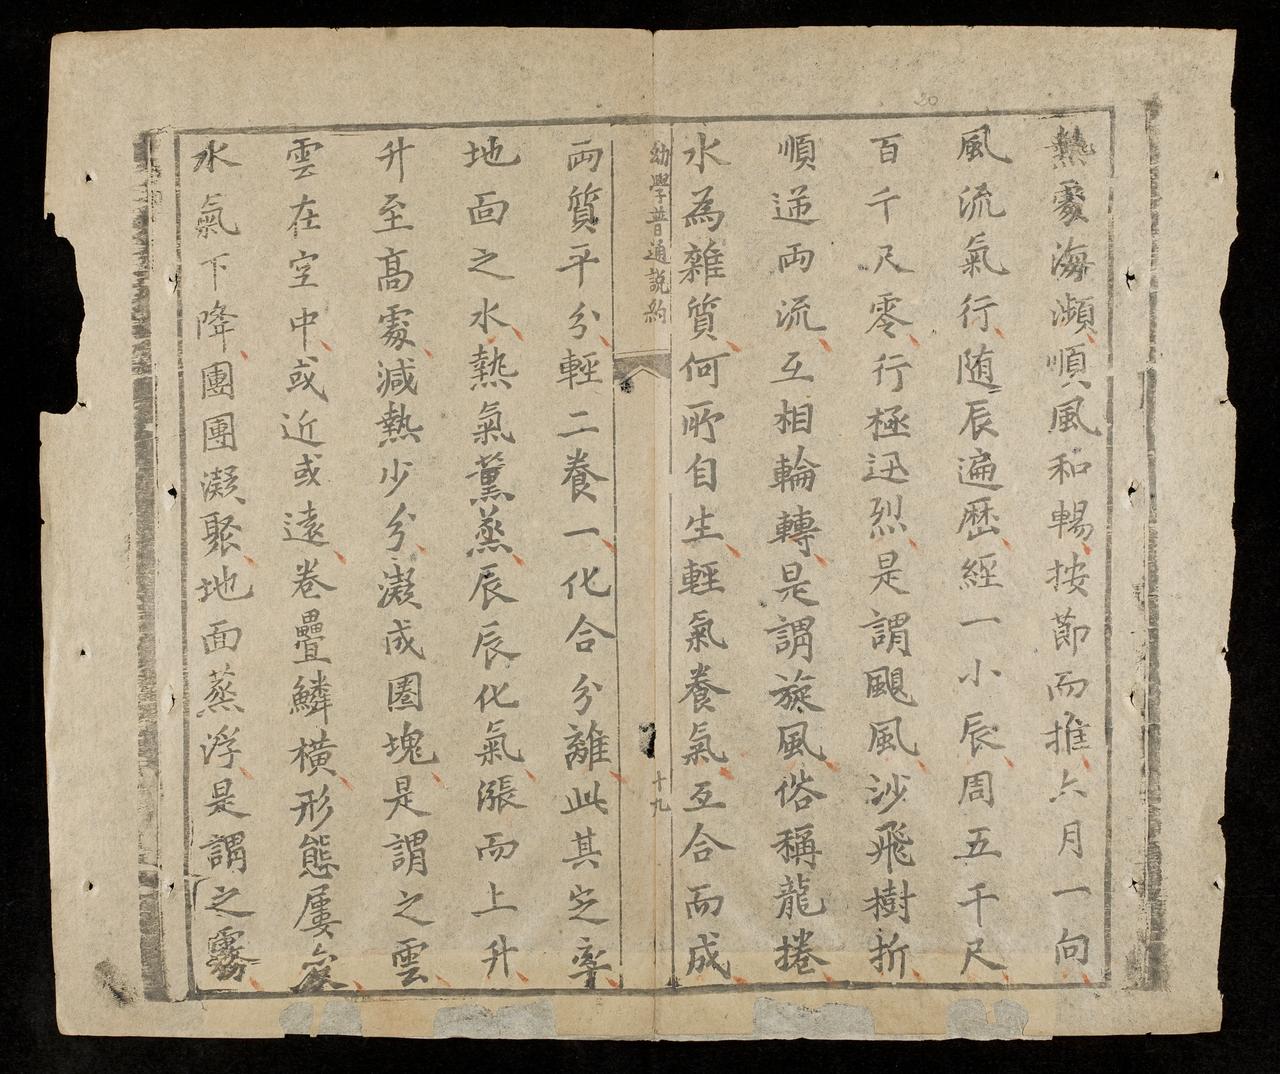 熱處海瀕順風和暢按節而推六月一向
風流氣行随辰遍歷經一小辰周五千尺
百千尺零行極迅烈是謂颶風沙飛樹折
順逆両流互相輪轉是謂旋風俗稱龍捲
水為雜質何所自生輕氣養氣互合而成
幼學普通説約
十九
両質平分輕二養一化合分離此其定率
地面之水熱氣薰蒸辰辰化氣漲而上升
升至高處減熱少分凝成團塊是謂之雲
雲在空中或近或遠卷疊鱗橫形態屢變
水氣下降團團凝聚地面蒸浮是謂之霧